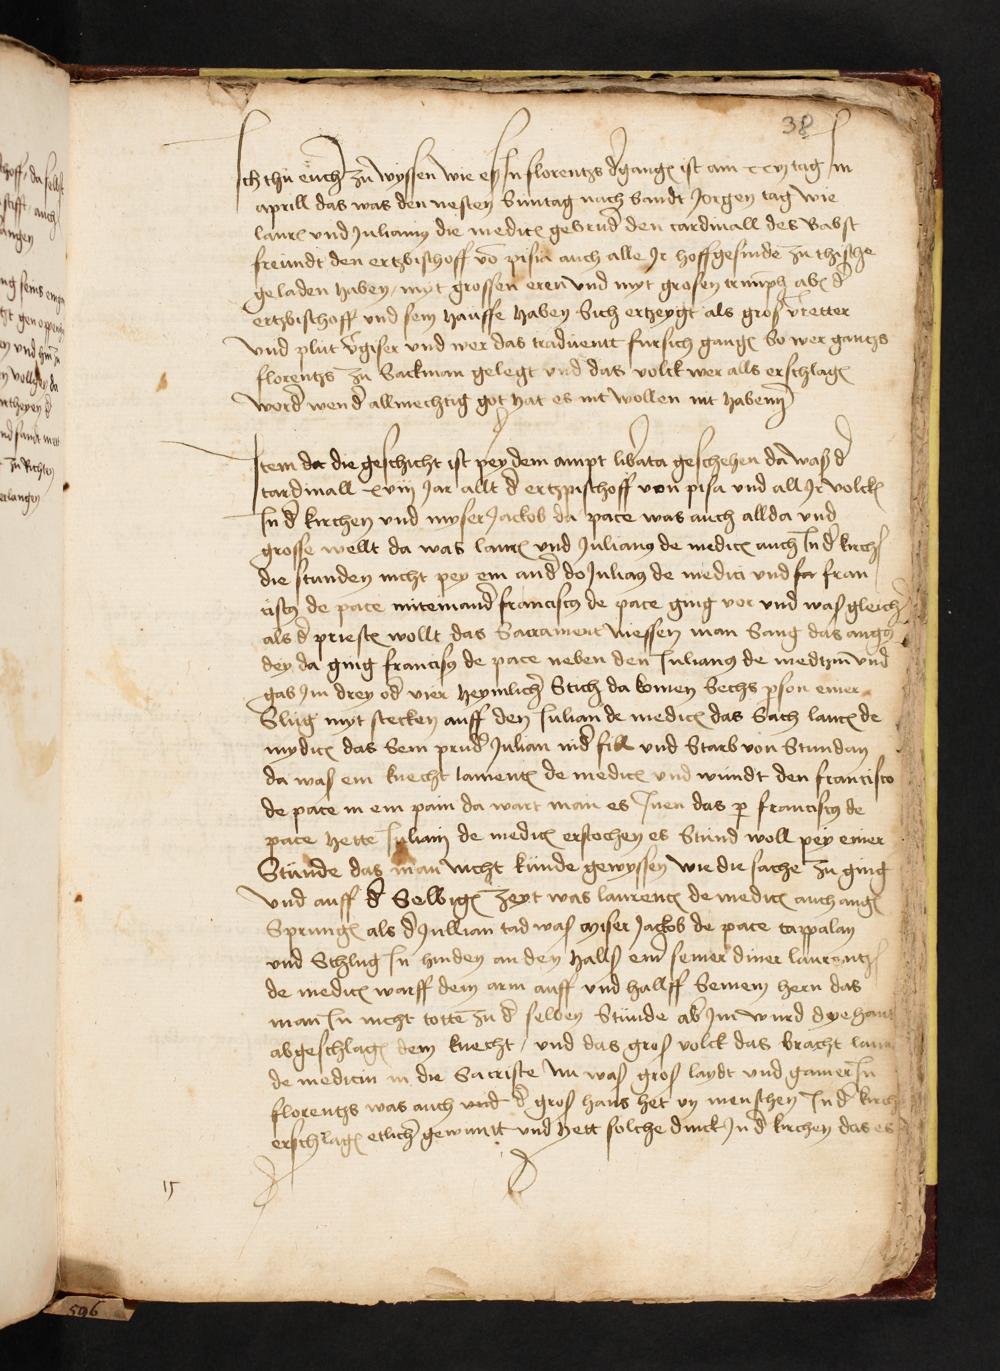 38
Ich thu euch zu wyssen wie es In florentzs dgangen ist am xxvj tag Im
aprill das was den nesten Suntag nach Sandt Jorgen tag wie
lauren und Julianus die medicen gebrud den cardinall des Babst
freundt den ertzbischoff vo pisia auch alle Ir hoffgesinde zu thische
geladen haben / myt grossen eren und myt grosen triumph aber d
ertzbischoff und sein hauffe haben Sich ertzeygt als gros vretter
und plut vgiser und wer das traduentt fursich gangen So wer gantzs
florentzs zu Sackman gelegt und das volck wer alls erschlagen
word wend allmechtig got hat es nit wollen nit habenn
Item do die geschicht ist pey dem ampt libata geschehen da was d
cardinall xviij Jar allt d ertzpischoff von pisa und all Ir volck
In d kirchen und myser Jackob da pace was auch allda und
grosse wellt da was lauren und Julianus de medicen auch In d kirch
die stunden nicht pey ein and do Julianus de medici und fran
ciscus de pace miteinand franciscus de pace ging vor und was gleich
als d priester wollt das Sacrament niessen man Sang das angnus
dey da ging franciscus de pace neben den Iulianus de medizin und
gab Im drey od vier heymlich Stich da komen Sechs pson einer
Slug myt stecken auff den Iulian de medicen das Sach lauren de
mydicen das Sein prud Julian nid fill und Starb von Stundan
da was ein knecht lamenten de medicen und wundt den francisco
de pace in ein pain da wart man es Inen das p franciscus de
pace hette Iuliani de medicen erstochen es Stund woll pey einer
Stunde das man nicht kunde gewyssen wie die sache zu ging
Und auff d Selbigen zeyt was laurencen de medicen auch angen
Sprungen als d Jullian tad was myser Jackob de pace cappalan
und Schlug In hinden an den halls ein seiner diner laurentzen
de medicen warff dem arm auff und hallff Seinem hern das
man In nicht totte zu d selben Stunde ab Im wurd dye hant
abgeschlagen dem knecht / und das gros volck das bracht lauren
de medicin in die Sacriste Nu was gros laydt und gamer In
florentzs was auch und d gros haus het vy menschen In d kirch
erschlagen etlich gewuntt und hett solche druck In d kirchen das es
15
596